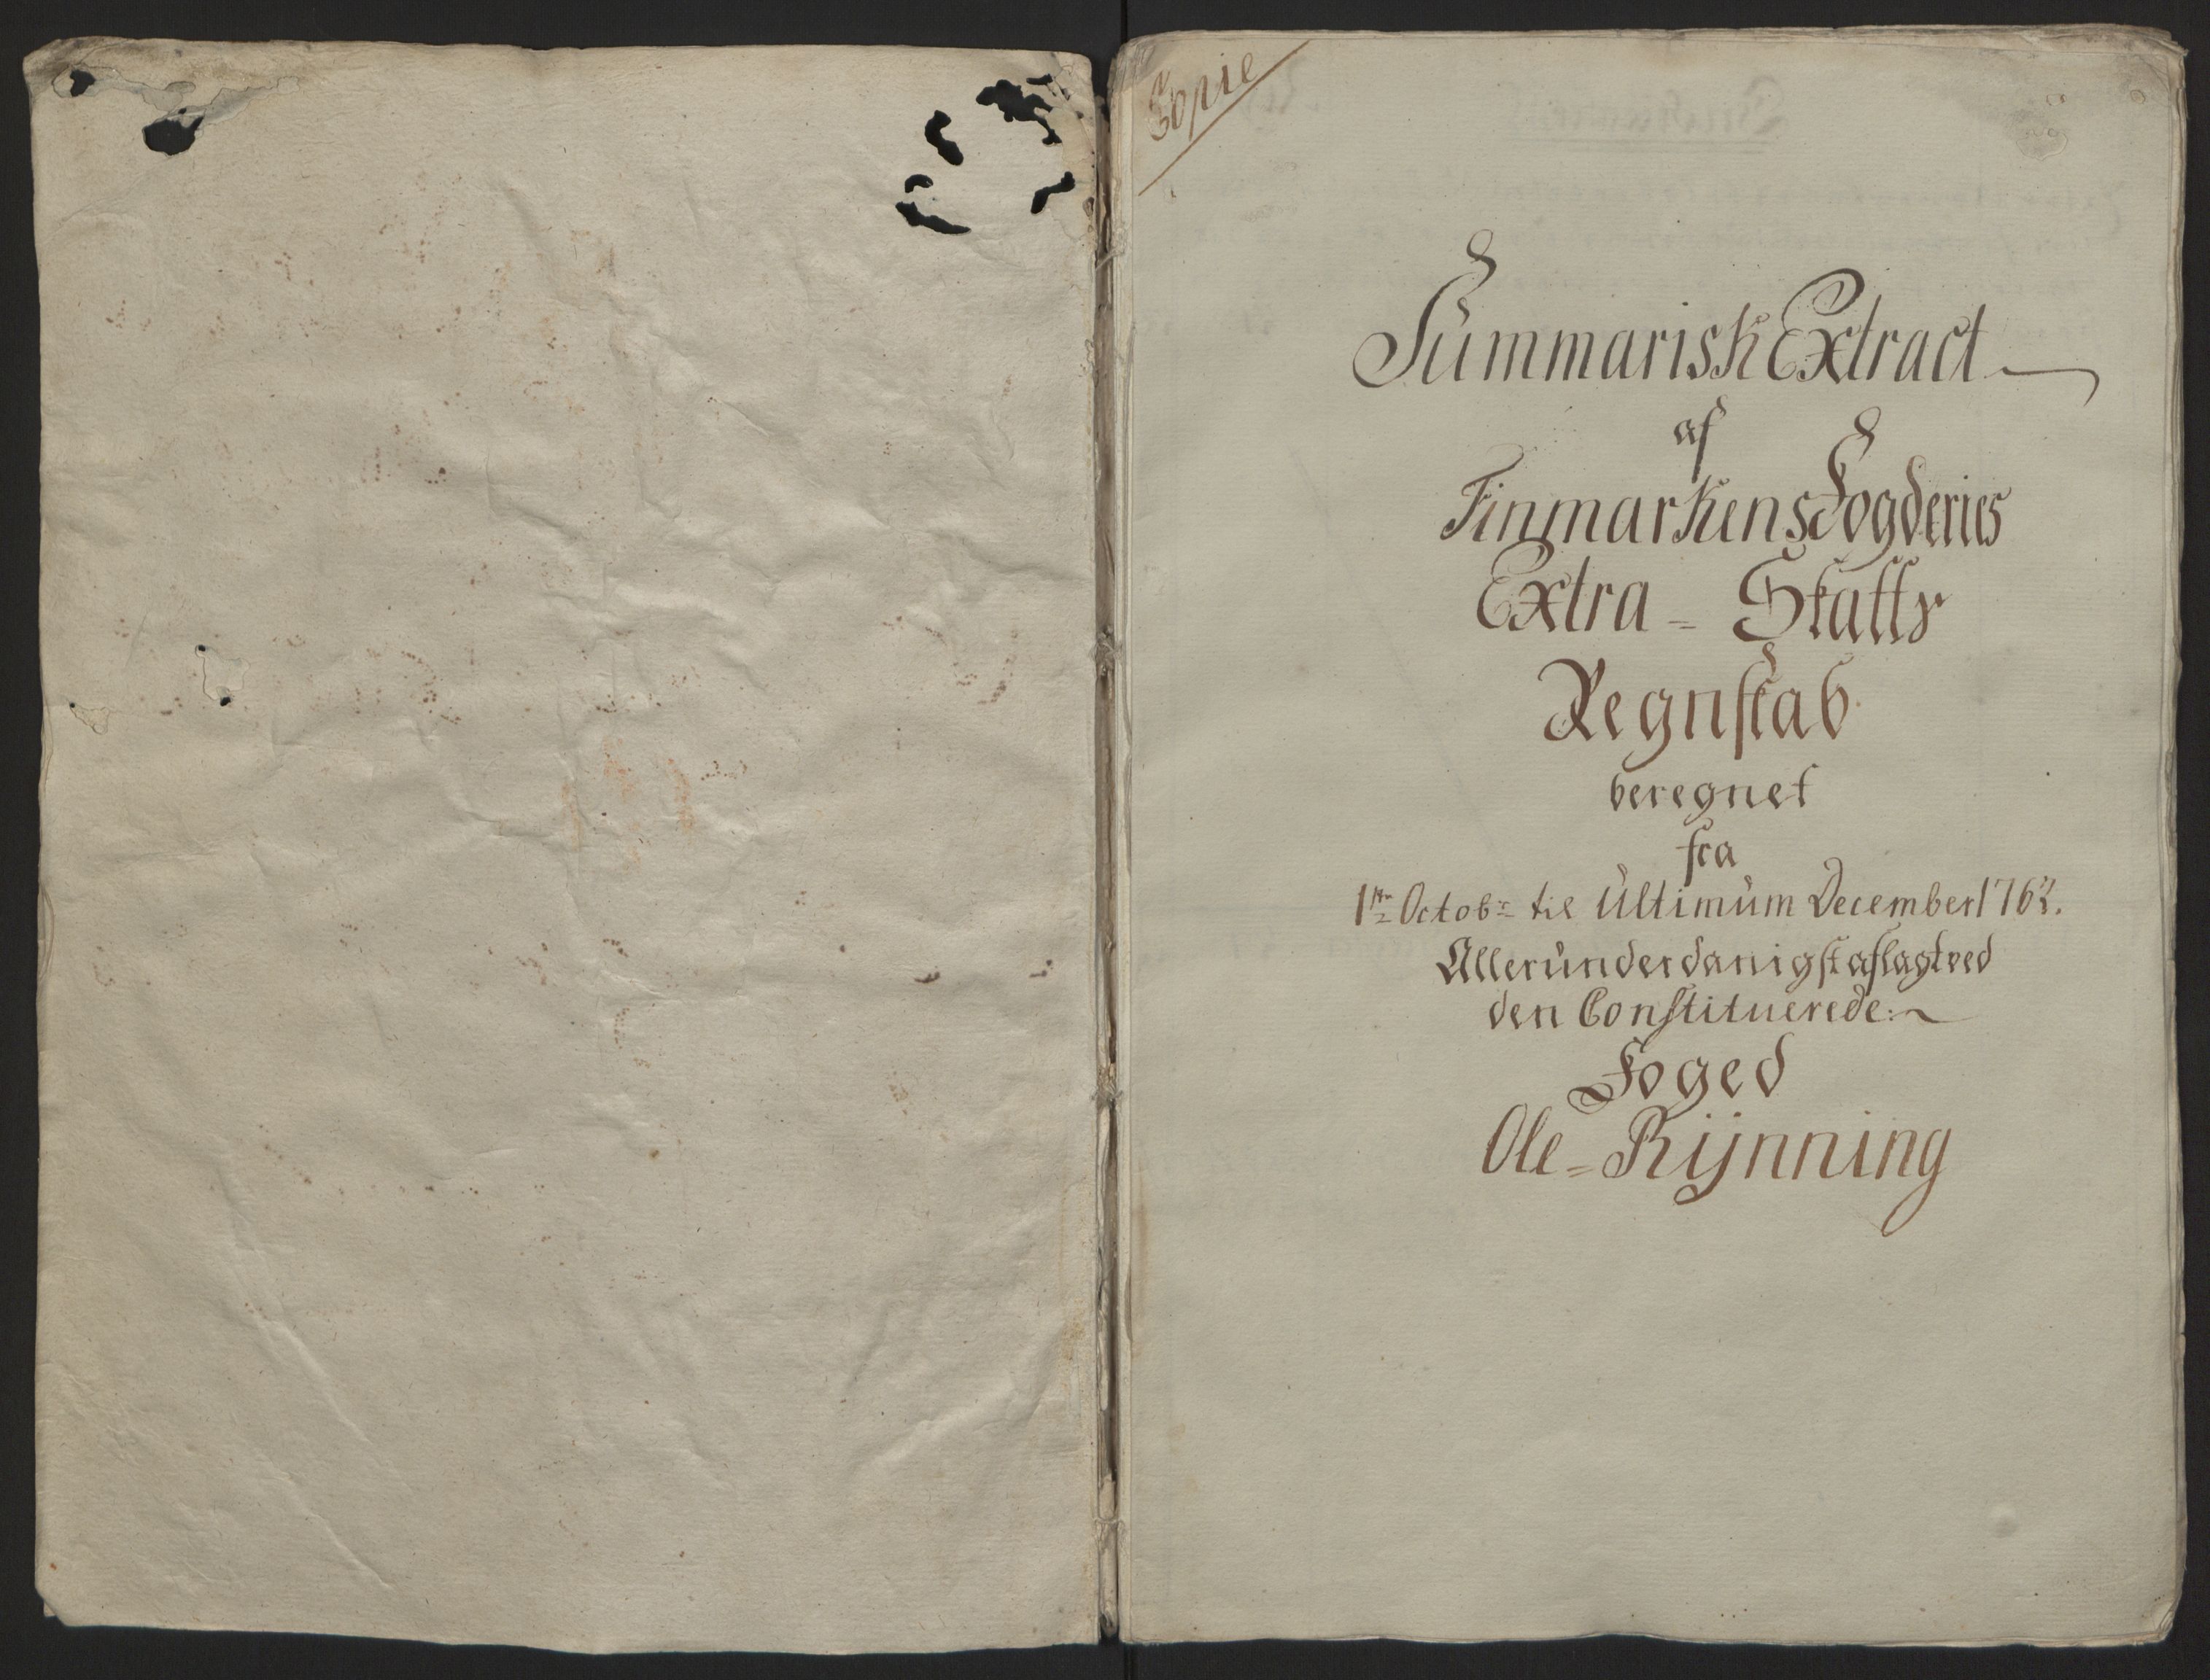 Copie
Summarisk Extract
af
Finmarkens Fogderies
Extra = Skatts
Regnskab
beregnet
fra
1ste Octobr til Ultimum December 1762.
Allerunderdanigst aflagt ved
den Constituerede
Foged
Ole = Rÿnning